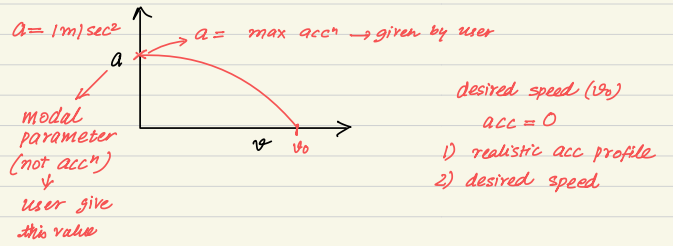 a = 1m/sec²
a = max accⁿ → given by user
a
modal
parameter
(not accⁿ)
user give
this value
v
v₀
desired speed (v₀)
acc = 0
1) realistic acc profile
2) desired speed